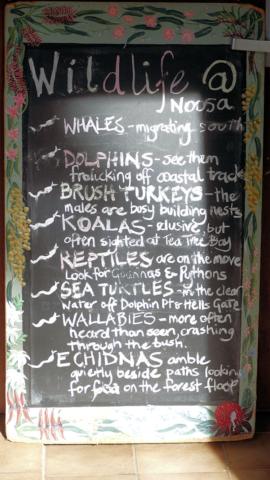 Wildlife @
Noosa
WHALES - migrating south
DOLPHINS - see them
frolicking off coastal track
BRUSH TURKEYS - the
males are busy building nests
KOALAS - elusive, but
often sighted at Tea Tree Bay
REPTILES are on the move
Look for Goannas & Pythons
SEA TURTLES - in the clear
Water off Dolphin Pt & Hells Gate
WALLABIES - more often
heard than seen, crashing
through the bush.
ECHIDNAS amble
quietly beside paths looking
for food on the forest floor